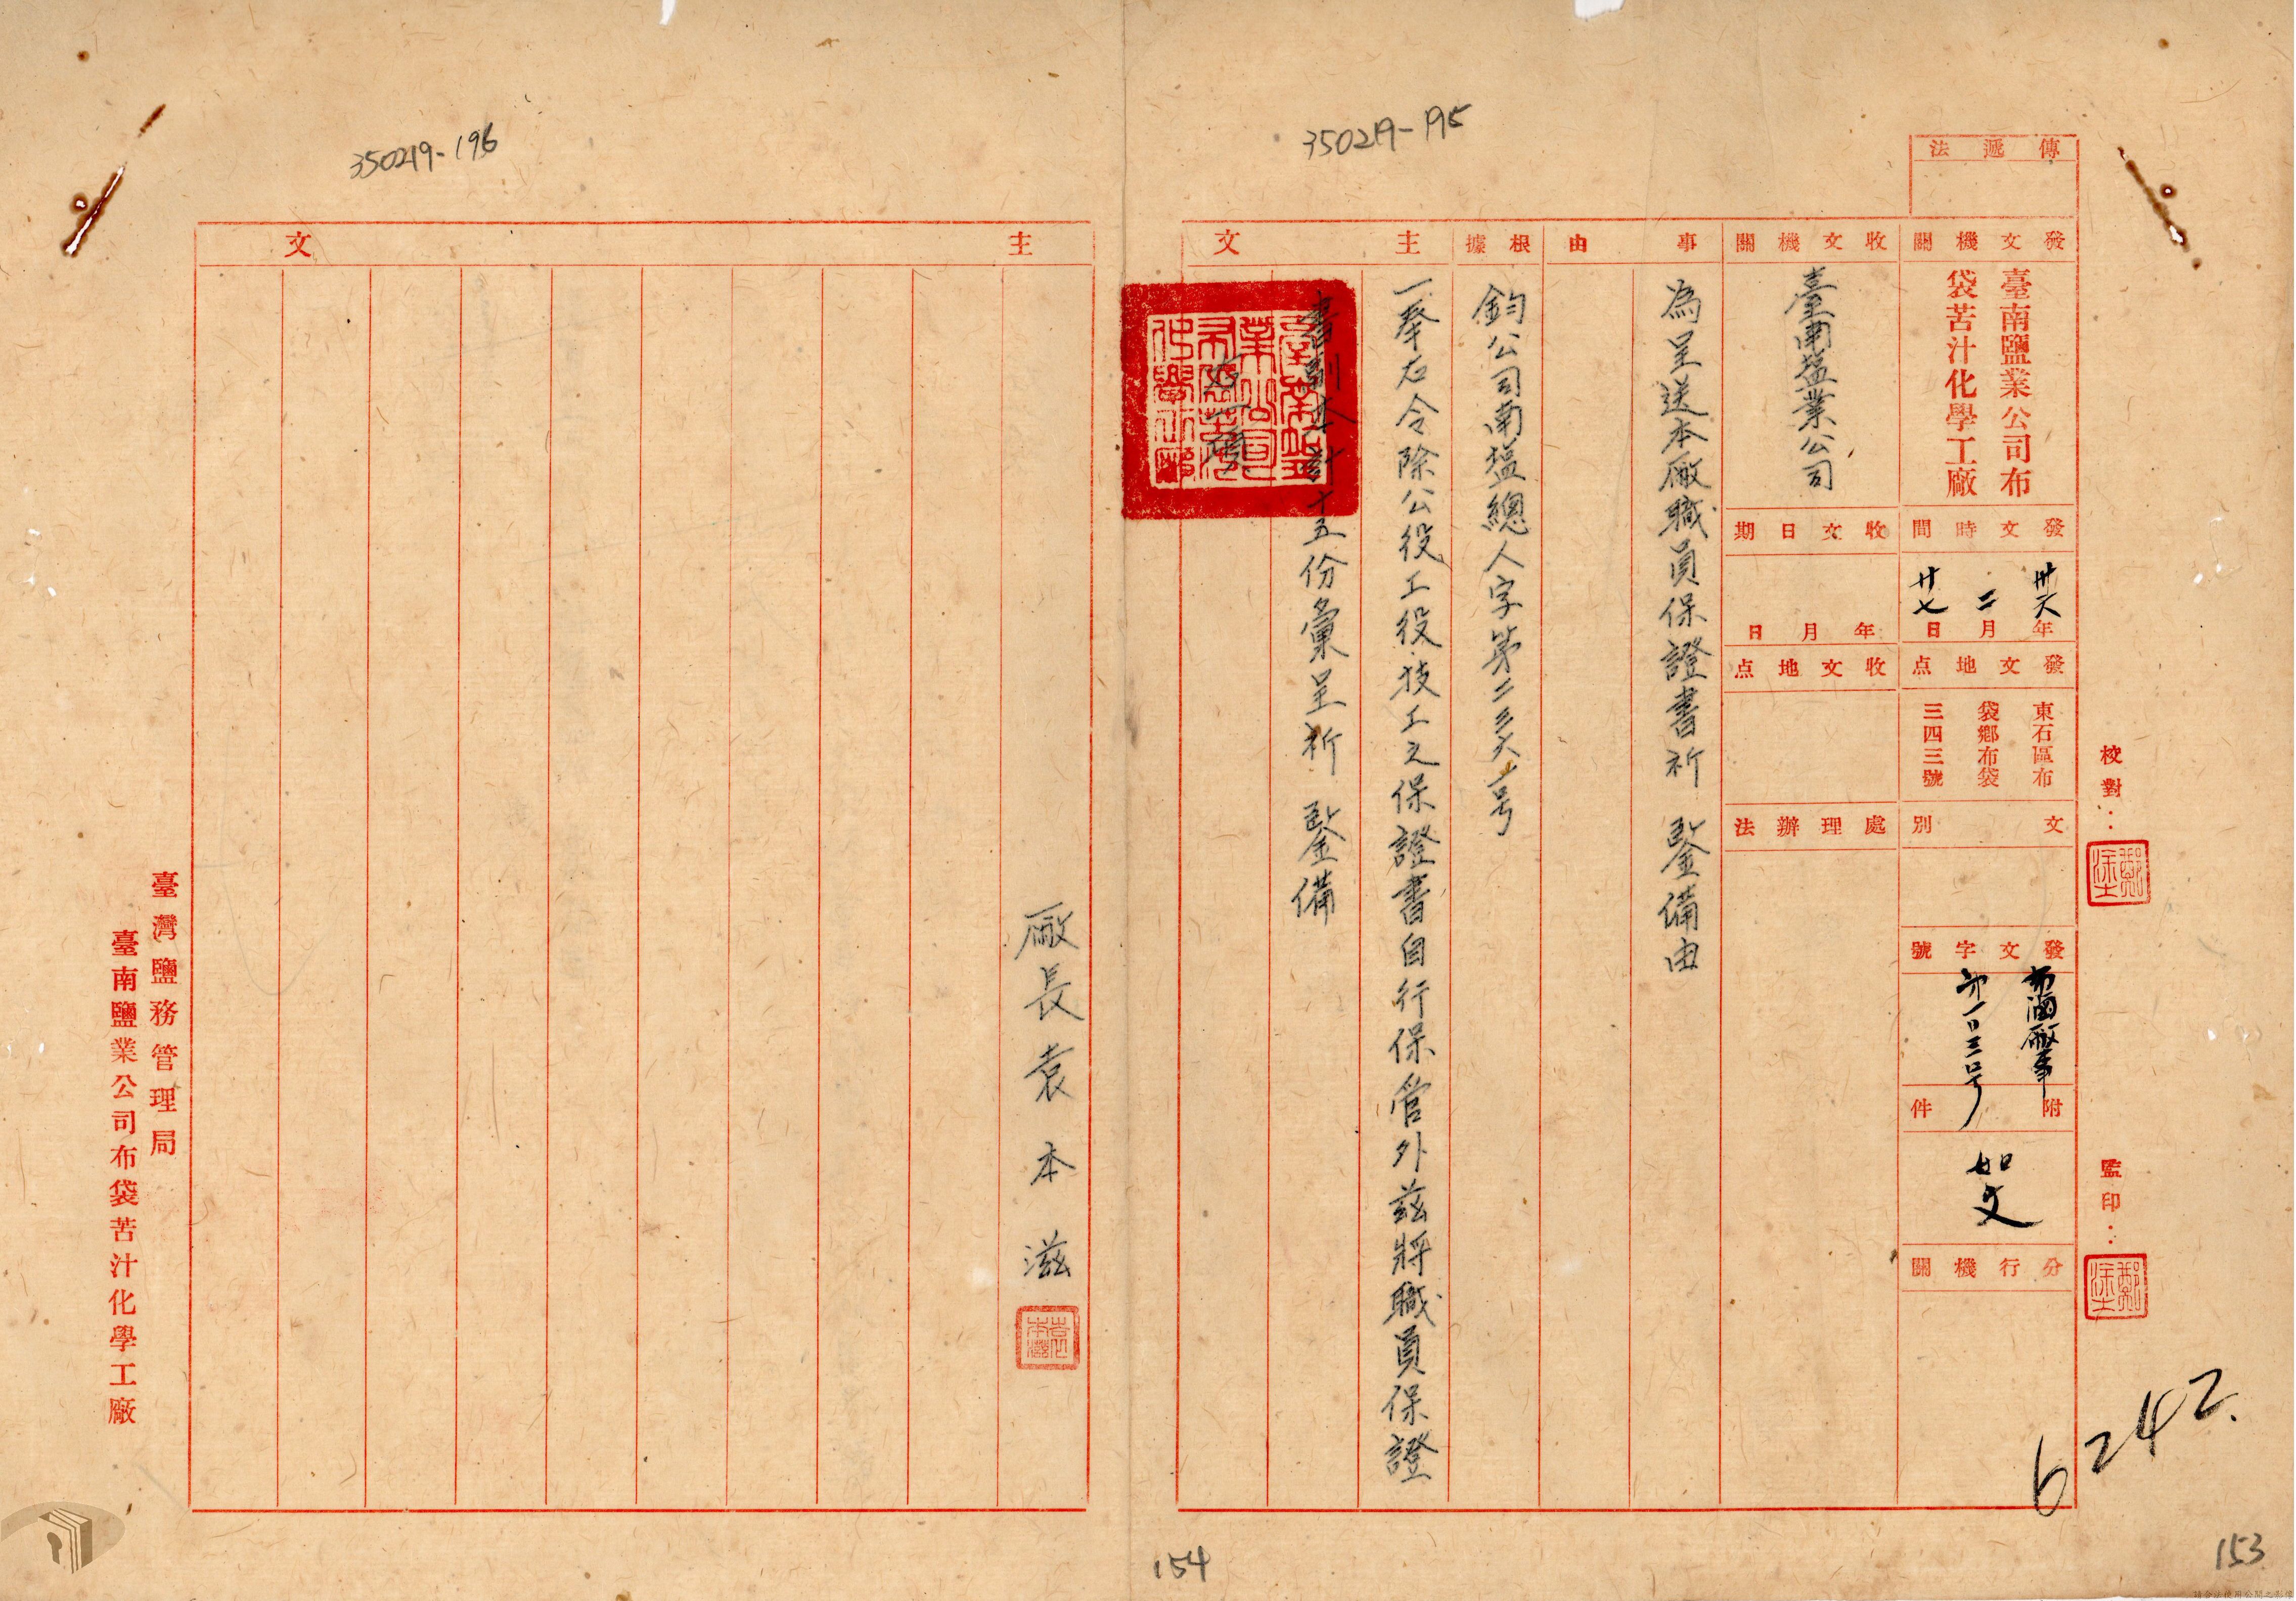 350219-195
350219-196
傳遞法
發文機關
臺南鹽業公司布
袋苦汁化學工廠
發文時間
卅六年
二月
廿七日
發文地点
東石區布
袋鄉布袋
三四三號
文別
發文字號
布滷廠筆
第一〇三〇号
附件
如文
分行機關
校對：
監印：
收文機關
臺南塩業公司
收文日期
年月日
收文地点
處理辦法
事由
為呈送本廠職員保證書祈 鑒備由
根據
鈞公司南塩總人字第二三六一号
主文
一奉右令除公役工役技工之保證書自行保管外茲將職員保證
書副本計十五份彙呈祈 鑒備
主文
廠長袁本滋
袁本滋
臺灣鹽務管理局
臺南鹽業公司布袋苦汁化學工廠
6242.
153
154